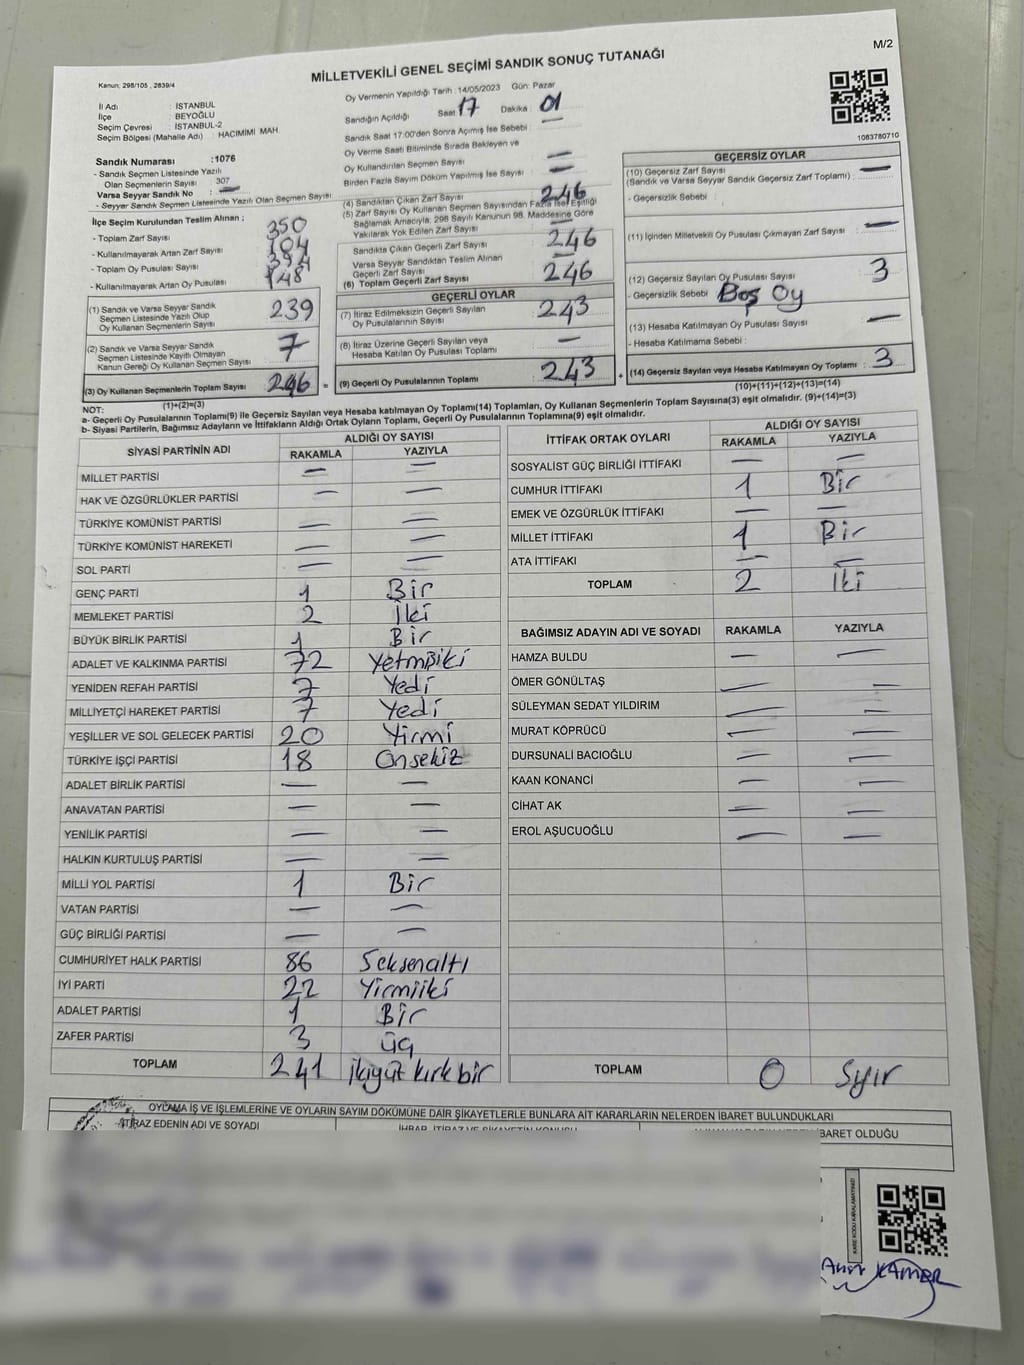 M/2
MİLLETVEKİLİ GENEL SEÇİMİ SANDIK SONUÇ TUTANAĞI
Kanun: 298/105 , 2839/4
İl Adı : İSTANBUL
İlçe : BEYOĞLU
Seçim Çevresi : İSTANBUL-2
Seçim Bölgesi (Mahalle Adı) : HACIMİMİ MAH.
Sandık Numarası :1076
- Sandık Seçmen Listesinde Yazılı
Olan Seçmenlerin Sayısı : 307
Varsa Seyyar Sandık No : —
- Seyyar Sandık Seçmen Listesinde Yazılı Olan Seçmen Sayısı
Oy Vermenin Yapıldığı Tarih :14/05/2023 Gün: Pazar
Sandığın Açıldığı Saat 17 Dakika : 01
Sandık Saat 17:00'den Sonra Açılmış İse Sebebi : —
Oy Verme Saati Bitiminde Sırada Bekleyen ve
Oy Kullandırılan Seçmen Sayısı : —
Birden Fazla Sayım Döküm Yapılmış İse Sayısı : —
1083780710
İlçe Seçim Kurulundan Teslim Alınan ;
- Toplam Zarf Sayısı 350
- Kullanılmayarak Artan Zarf Sayısı 104
- Toplam Oy Pusulası Sayısı 394
- Kullanılmayarak Artan Oy Pusulası 148
(1) Sandık ve Varsa Seyyar Sandık
Seçmen Listesinde Yazılı Olup
Oy Kullanan Seçmenlerin Sayısı 239
(2) Sandık ve Varsa Seyyar Sandık
Seçmen Listesinde Kayıtlı Olmayan
Kanun Gereği Oy Kullanan Seçmen Sayısı 7
(3) Oy Kullanan Seçmenlerin Toplam Sayısı 246 =
(1)+(2)=(3)
(4) Sandıktan Çıkan Zarf Sayısı : 246
(5) Zarf Sayısı Oy Kullanan Seçmen Sayısından Fazla İse, Eşitliği
Sağlamak Amacıyla; 298 Sayılı Kanunun 98. Maddesine Göre
Yakılarak Yok Edilen Zarf Sayısı : —
Sandıkta Çıkan Geçerli Zarf Sayısı 246
Varsa Seyyar Sandıktan Teslim Alınan
Geçerli Zarf Sayısı —
(6) Toplam Geçerli Zarf Sayısı 246
GEÇERLİ OYLAR
(7) İtiraz Edilmeksizin Geçerli Sayılan
Oy Pusulalarının Sayısı 243
(8) İtiraz Üzerine Geçerli Sayılan veya
Hesaba Katılan Oy Pusulası Toplamı —
(9) Geçerli Oy Pusulalarının Toplamı 243 +
GEÇERSİZ OYLAR
(10) Geçersiz Zarf Sayısı —
(Sandık ve Varsa Seyyar Sandık Geçersiz Zarf Toplamı) :
- Geçersizlik Sebebi :
(11) İçinden Milletvekili Oy Pusulası Çıkmayan Zarf Sayısı : —
(12) Geçersiz Sayılan Oy Pusulası Sayısı : 3
- Geçersizlik Sebebi : Boş Oy
(13) Hesaba Katılmayan Oy Pusulası Sayısı : —
- Hesaba Katılmama Sebebi :
(14) Geçersiz Sayılan veya Hesaba Katılmayan Oy Toplamı : 3
(10)+(11)+(12)+(13)=(14)
NOT:
a- Geçerli Oy Pusulalarının Toplamı(9) ile Geçersiz Sayılan veya Hesaba katılmayan Oy Toplamı(14) Toplamları, Oy Kullanan Seçmenlerin Toplam Sayısına(3) eşit olmalıdır. (9)+(14)=(3)
b- Siyasi Partilerin, Bağımsız Adayların ve İttifakların Aldığı Ortak Oyların Toplamı, Geçerli Oy Pusulalarının Toplamına(9) eşit olmalıdır.
SİYASİ PARTİNİN ADI ALDIĞI OY SAYISI
RAKAMLA YAZIYLA
MİLLET PARTİSİ — —
HAK VE ÖZGÜRLÜKLER PARTİSİ — —
TÜRKİYE KOMÜNİST PARTİSİ — —
TÜRKİYE KOMÜNİST HAREKETİ — —
SOL PARTİ — —
GENÇ PARTİ 1 Bir
MEMLEKET PARTİSİ 2 İki
BÜYÜK BİRLİK PARTİSİ 1 Bir
ADALET VE KALKINMA PARTİSİ 72 Yetmişiki
YENİDEN REFAH PARTİSİ 7 Yedi
MİLLİYETÇİ HAREKET PARTİSİ 7 Yedi
YEŞİLLER VE SOL GELECEK PARTİSİ 20 Yirmi
TÜRKİYE İŞÇİ PARTİSİ 18 Onsekiz
ADALET BİRLİK PARTİSİ — —
ANAVATAN PARTİSİ — —
YENİLİK PARTİSİ — —
HALKIN KURTULUŞ PARTİSİ — —
MİLLİ YOL PARTİSİ 1 Bir
VATAN PARTİSİ — —
GÜÇ BİRLİĞİ PARTİSİ — —
CUMHURİYET HALK PARTİSİ 86 Seksenaltı
İYİ PARTİ 22 Yirmiiki
ADALET PARTİSİ 1 Bir
ZAFER PARTİSİ 3 üç
TOPLAM 241 ikiyüz kırk bir
İTTİFAK ORTAK OYLARI ALDIĞI OY SAYISI
RAKAMLA YAZIYLA
SOSYALİST GÜÇ BİRLİĞİ İTTİFAKI — —
CUMHUR İTTİFAKI 1 Bir
EMEK VE ÖZGÜRLÜK İTTİFAKI — —
MİLLET İTTİFAKI 1 Bir
ATA İTTİFAKI — —
TOPLAM 2 İki
BAĞIMSIZ ADAYIN ADI VE SOYADI RAKAMLA YAZIYLA
HAMZA BULDU — —
ÖMER GÖNÜLTAŞ — —
SÜLEYMAN SEDAT YILDIRIM — —
MURAT KÖPRÜCÜ — —
DURSUNALİ BACIOĞLU — —
KAAN KONANCİ — —
CİHAT AK — —
EROL AŞUCUOĞLU — —
TOPLAM 0 Sıfır
OYLAMA İŞ VE İŞLEMLERİNE VE OYLARIN SAYIM DÖKÜMÜNE DAİR ŞİKAYETLERLE BUNLARA AİT KARARLARIN NELERDEN İBARET BULUNDUKLARI
İTİRAZ EDENİN ADI VE SOYADI İHBAR, İTİRAZ VE ŞİKAYETİN KONUSU BARET OLDUĞU
KARE KODU KARALAMAYINIZ!
KAMER